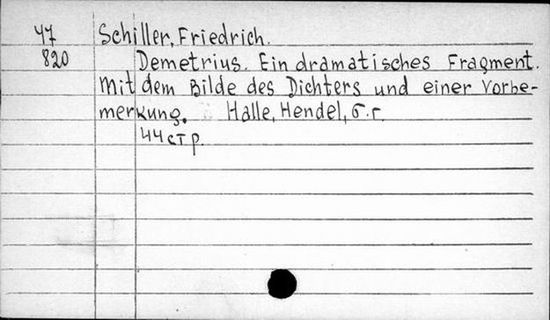 47 Schiller, Friedrich.
820 Demetrius. Ein dramatisches Fragment.
Mit dem Bilde des Dichters und einer Vorbe-
merkung. Halle, Hendel, б.г.
44 стр.